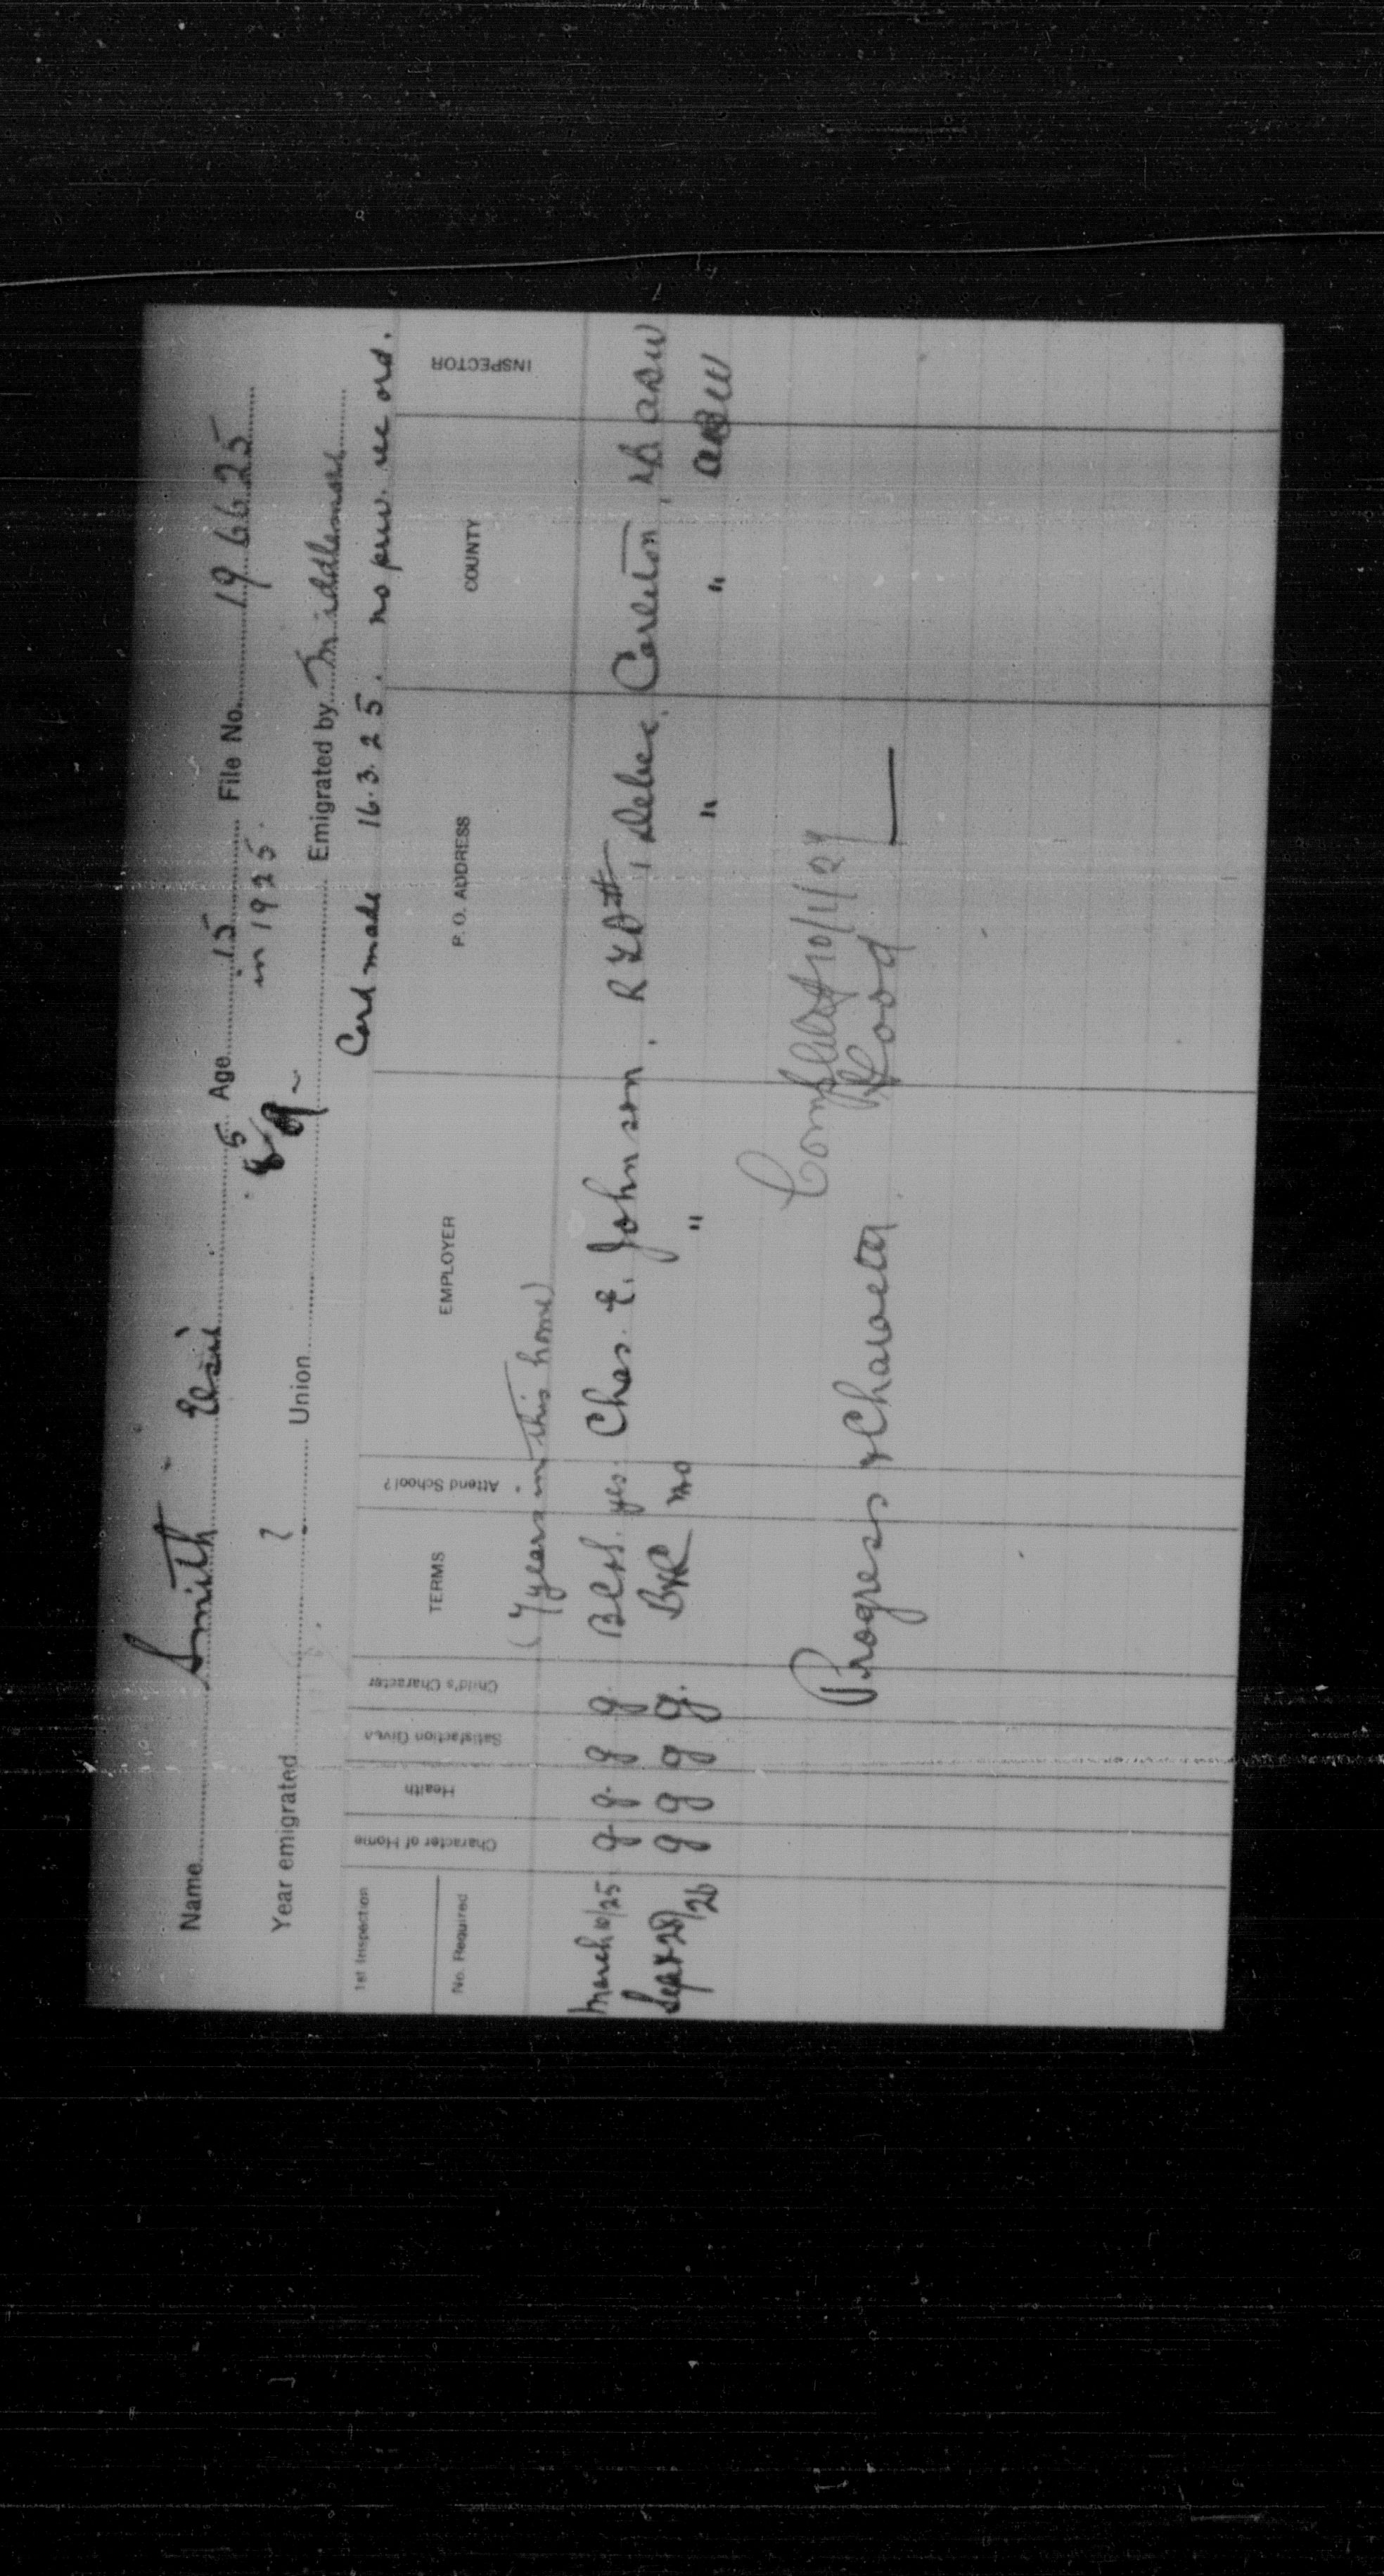 Name Smith - Elsie Age 15 File No. 196625
in 1925.
Year emigrated ? Union Emigrated by Middlemore
Card made 16.3.25. no prev. record.
1st Inspection
No. Required
Character of Home Health Satisfaction Given Child's Character TERMS Attend School? EMPLOYER P. O. ADDRESS COUNTY INSPECTOR
(7 years in this home)
March 10/25 g. g. g g. BC&S. yes. Chas. E. Johnson. RFD # 1 Debec, Carleton, NB
Sept 28/26 g g g g. B&C no " " "
Completed 10/1/27
Progress & Character Good